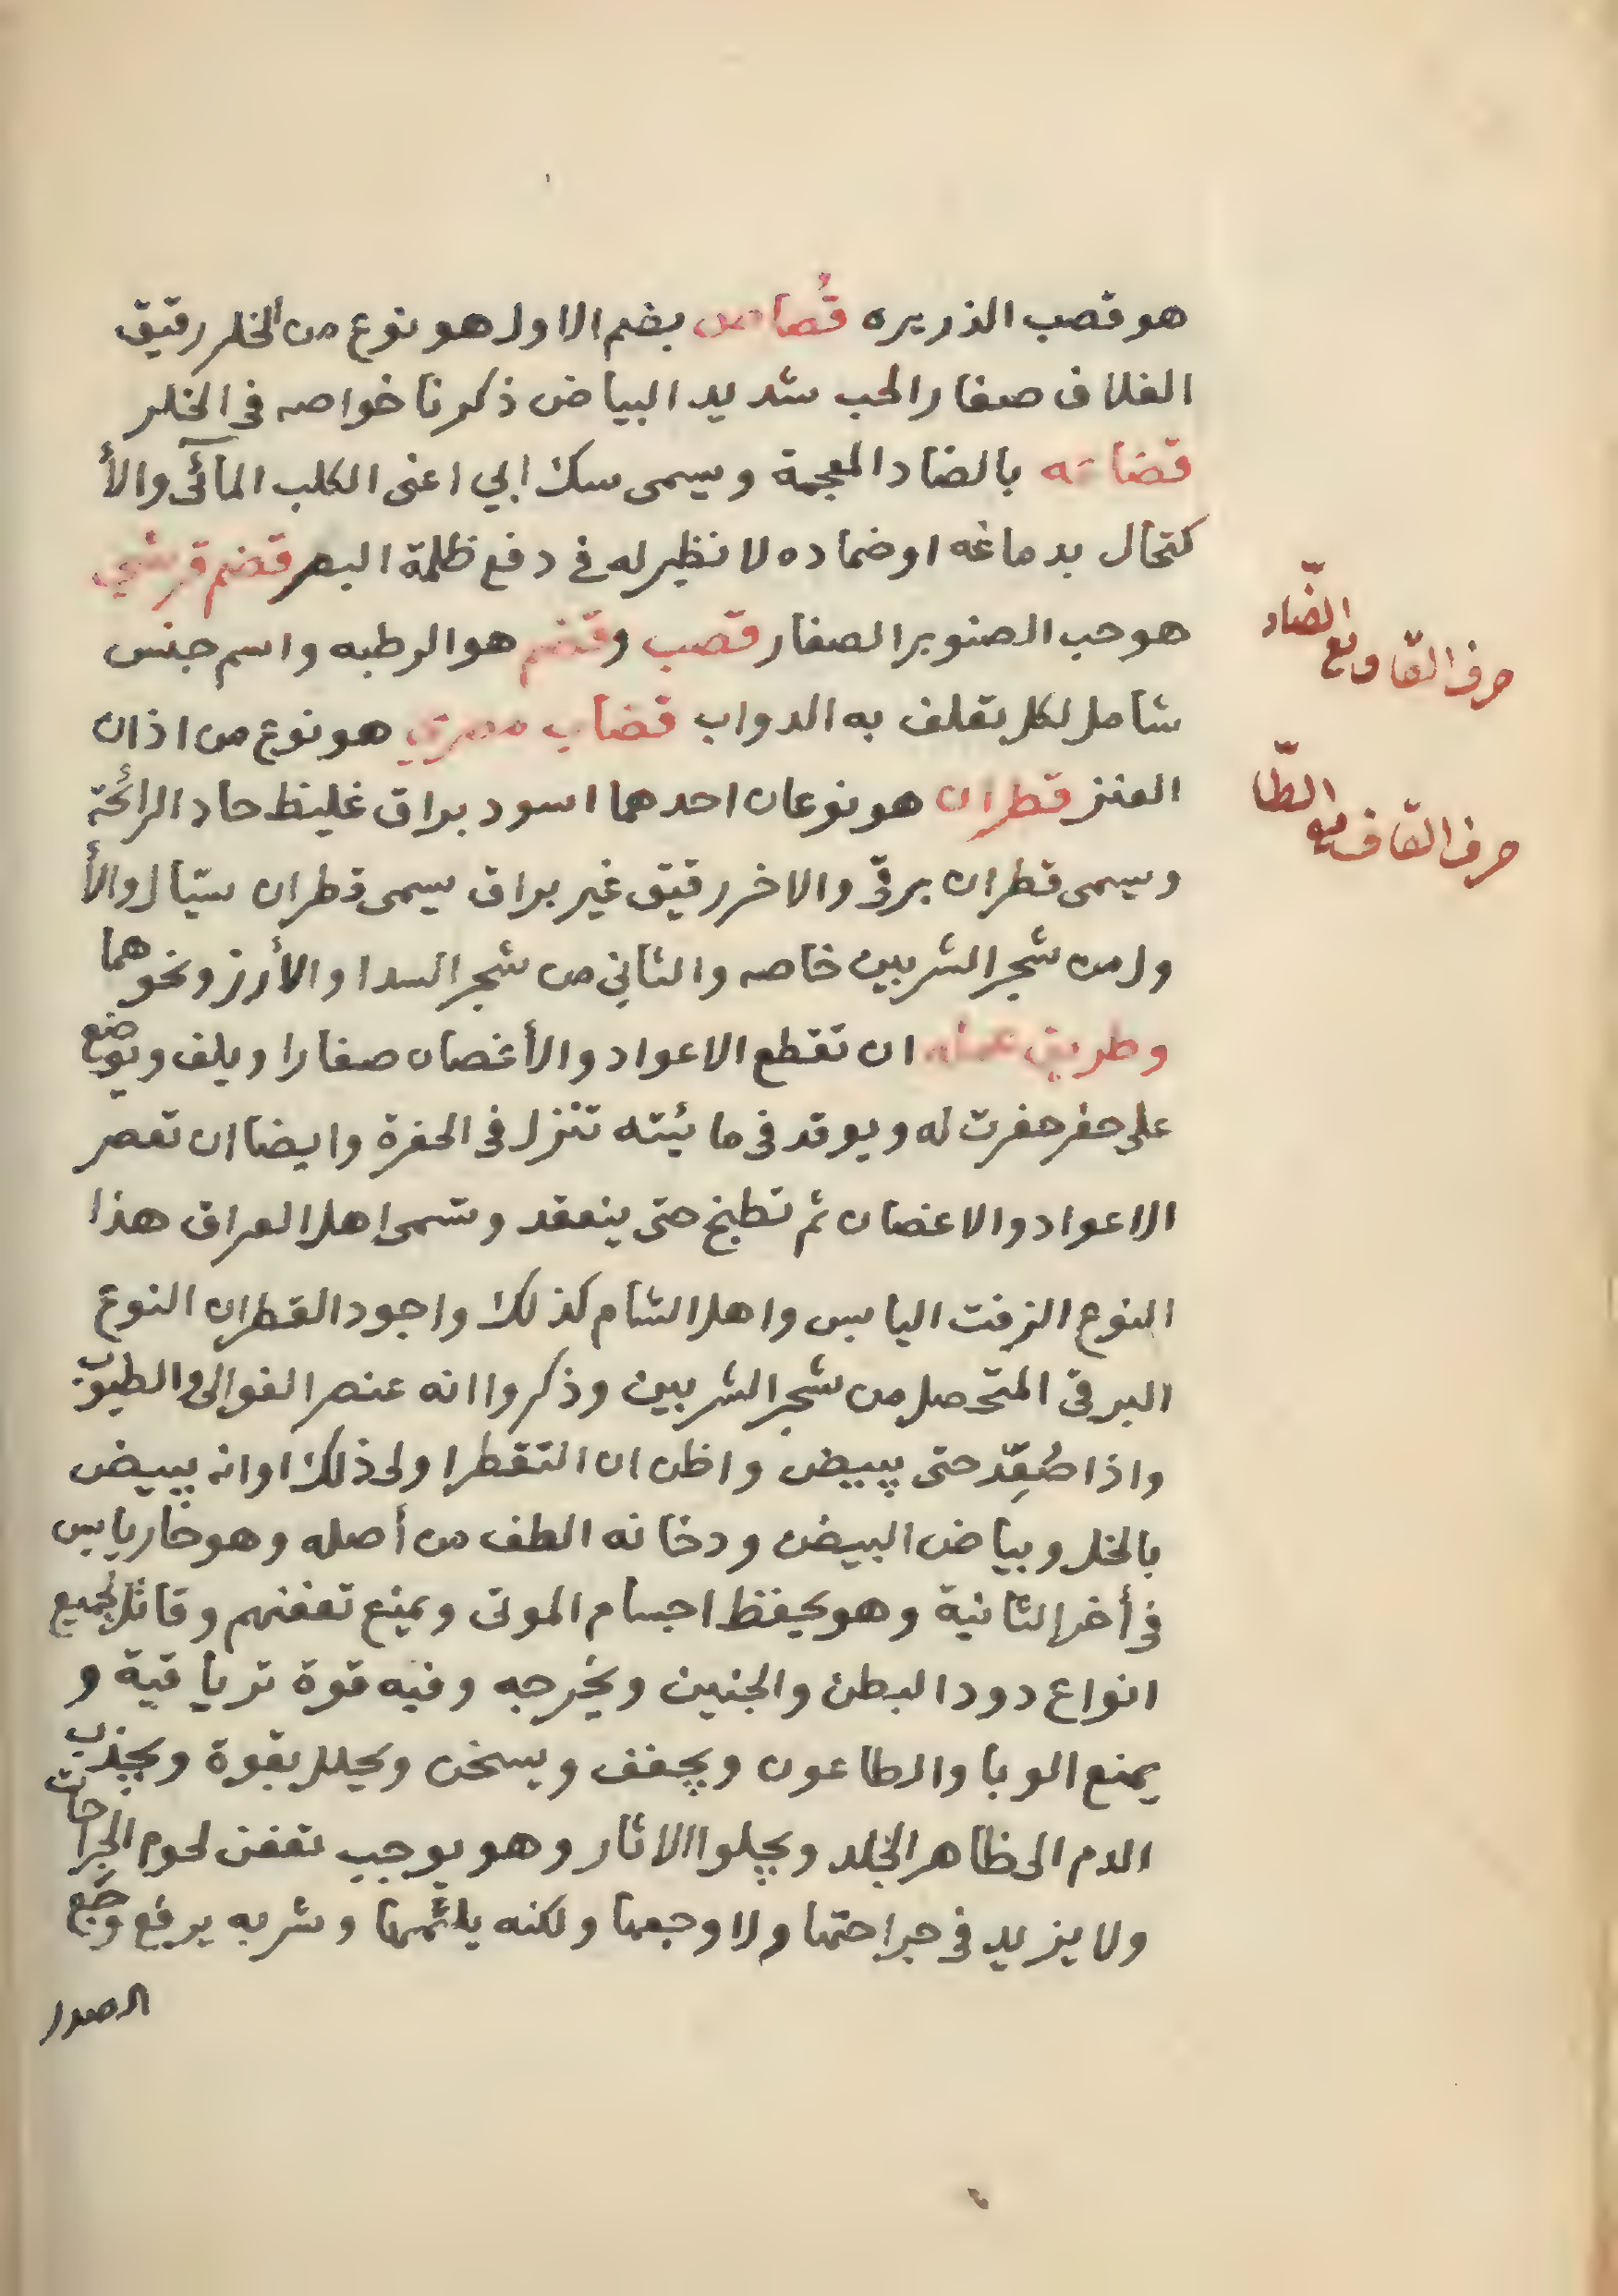 هو قصب الذريره قُصاص بضم الاول هو نوع من الخلر رقيق
الغلاف صغار الحب شديد البياض ذكرنا خواصه فى الخلر
قضاعه بالضاد المعجمة ويسمى سك ابي اعنى الكلب المآئى والأ
كتحال بدماغه او ضماده لا نظير له فى دفع ظلمة البصر قضم قريشي
هو حب الصنوبر الصغار قصب وقضم هو الرطبه واسم جنس
شامل لكل يعلف به الدواب قضاب مصري هو نوع من اذان
العنز قطران هو نوعان احدهما اسود براق غليظ حاد الرائحة
ويسمى قطران برقّ والاخر رقيق غير براق يسمى قطران سيّال والأ
ول من شجر الشربين خاصه والثاني من شجر السدا والأرز ونحوهما
وطريق عمله ان تقطع الاعواد والأغصان صغارا ويلف ويوضع
على حفر حفرت له ويوقد فى مائيته تنزل فى الحفرة وايضا ان تعصر
الاعواد والاغصان ثم تطبخ حتى ينعقد وتسمى اهل العراق هذا
النوع الزفت اليابس واهل الشام كذلك واجود القطران النوع
البرقى المتحصل من شجر الشربين وذكروا انه عنصر الغوالى والطيوب
واذا صُعِّد حتى يبيض واظن ان التقطر اولى ذلك او انه يبيض
بالخل وبياض البيض ودخانه الطف من أصله وهو حار يابس
فى أخر الثانية وهو يحفظ اجسام الموتى ويمنع تعفنهم وقاتل لجميع
انواع دود البطن والجنين ويخرجه وفيه قوة ترياقية و
يمنع الوبا والطاعون ويجفف ويسخن ويحلل بقوة ويجذب
الدم الى ظاهر الجلد ويجلوا الاثار وهو يوجب تعفن لحوم الجراحات
ولا يزيد فى جراحتها ولا وجعها ولكنه يلئمها وشربه يرفع وجع
الصدر
حرف القاف مع الضّاد
حرف القاف مع الطّا